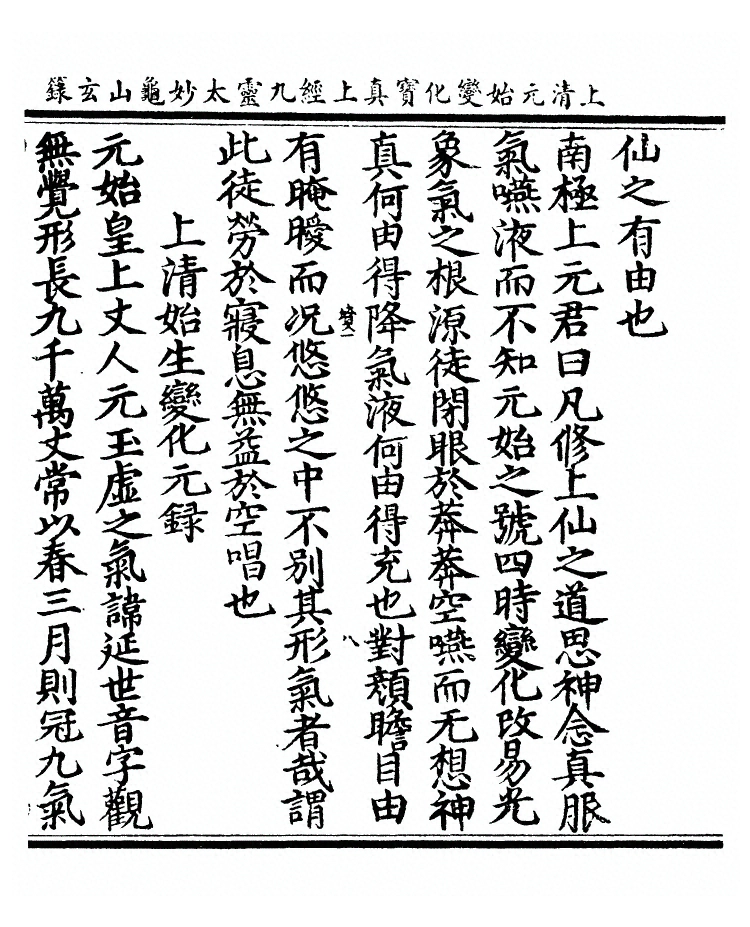 上清元始變化寶真上經九靈太妙龜山玄籙
仙之有由也
南極上元君曰凡修上仙之道思神念真服
氣嚥液而不知元始之號四時變化改易光
象氣之根源徒閉眼於莽莽空嚥而无想神
真何由得降氣液何由得充也對顏瞻目由
八
有晻曖而况悠悠之中不別其形氣者哉謂
此徒勞於寢息無益於空唱也
上清始生變化元録
元始皇上丈人元玉虛之氣諱延世音字觀
無覺形長九千萬丈常以春三月則冠九氣